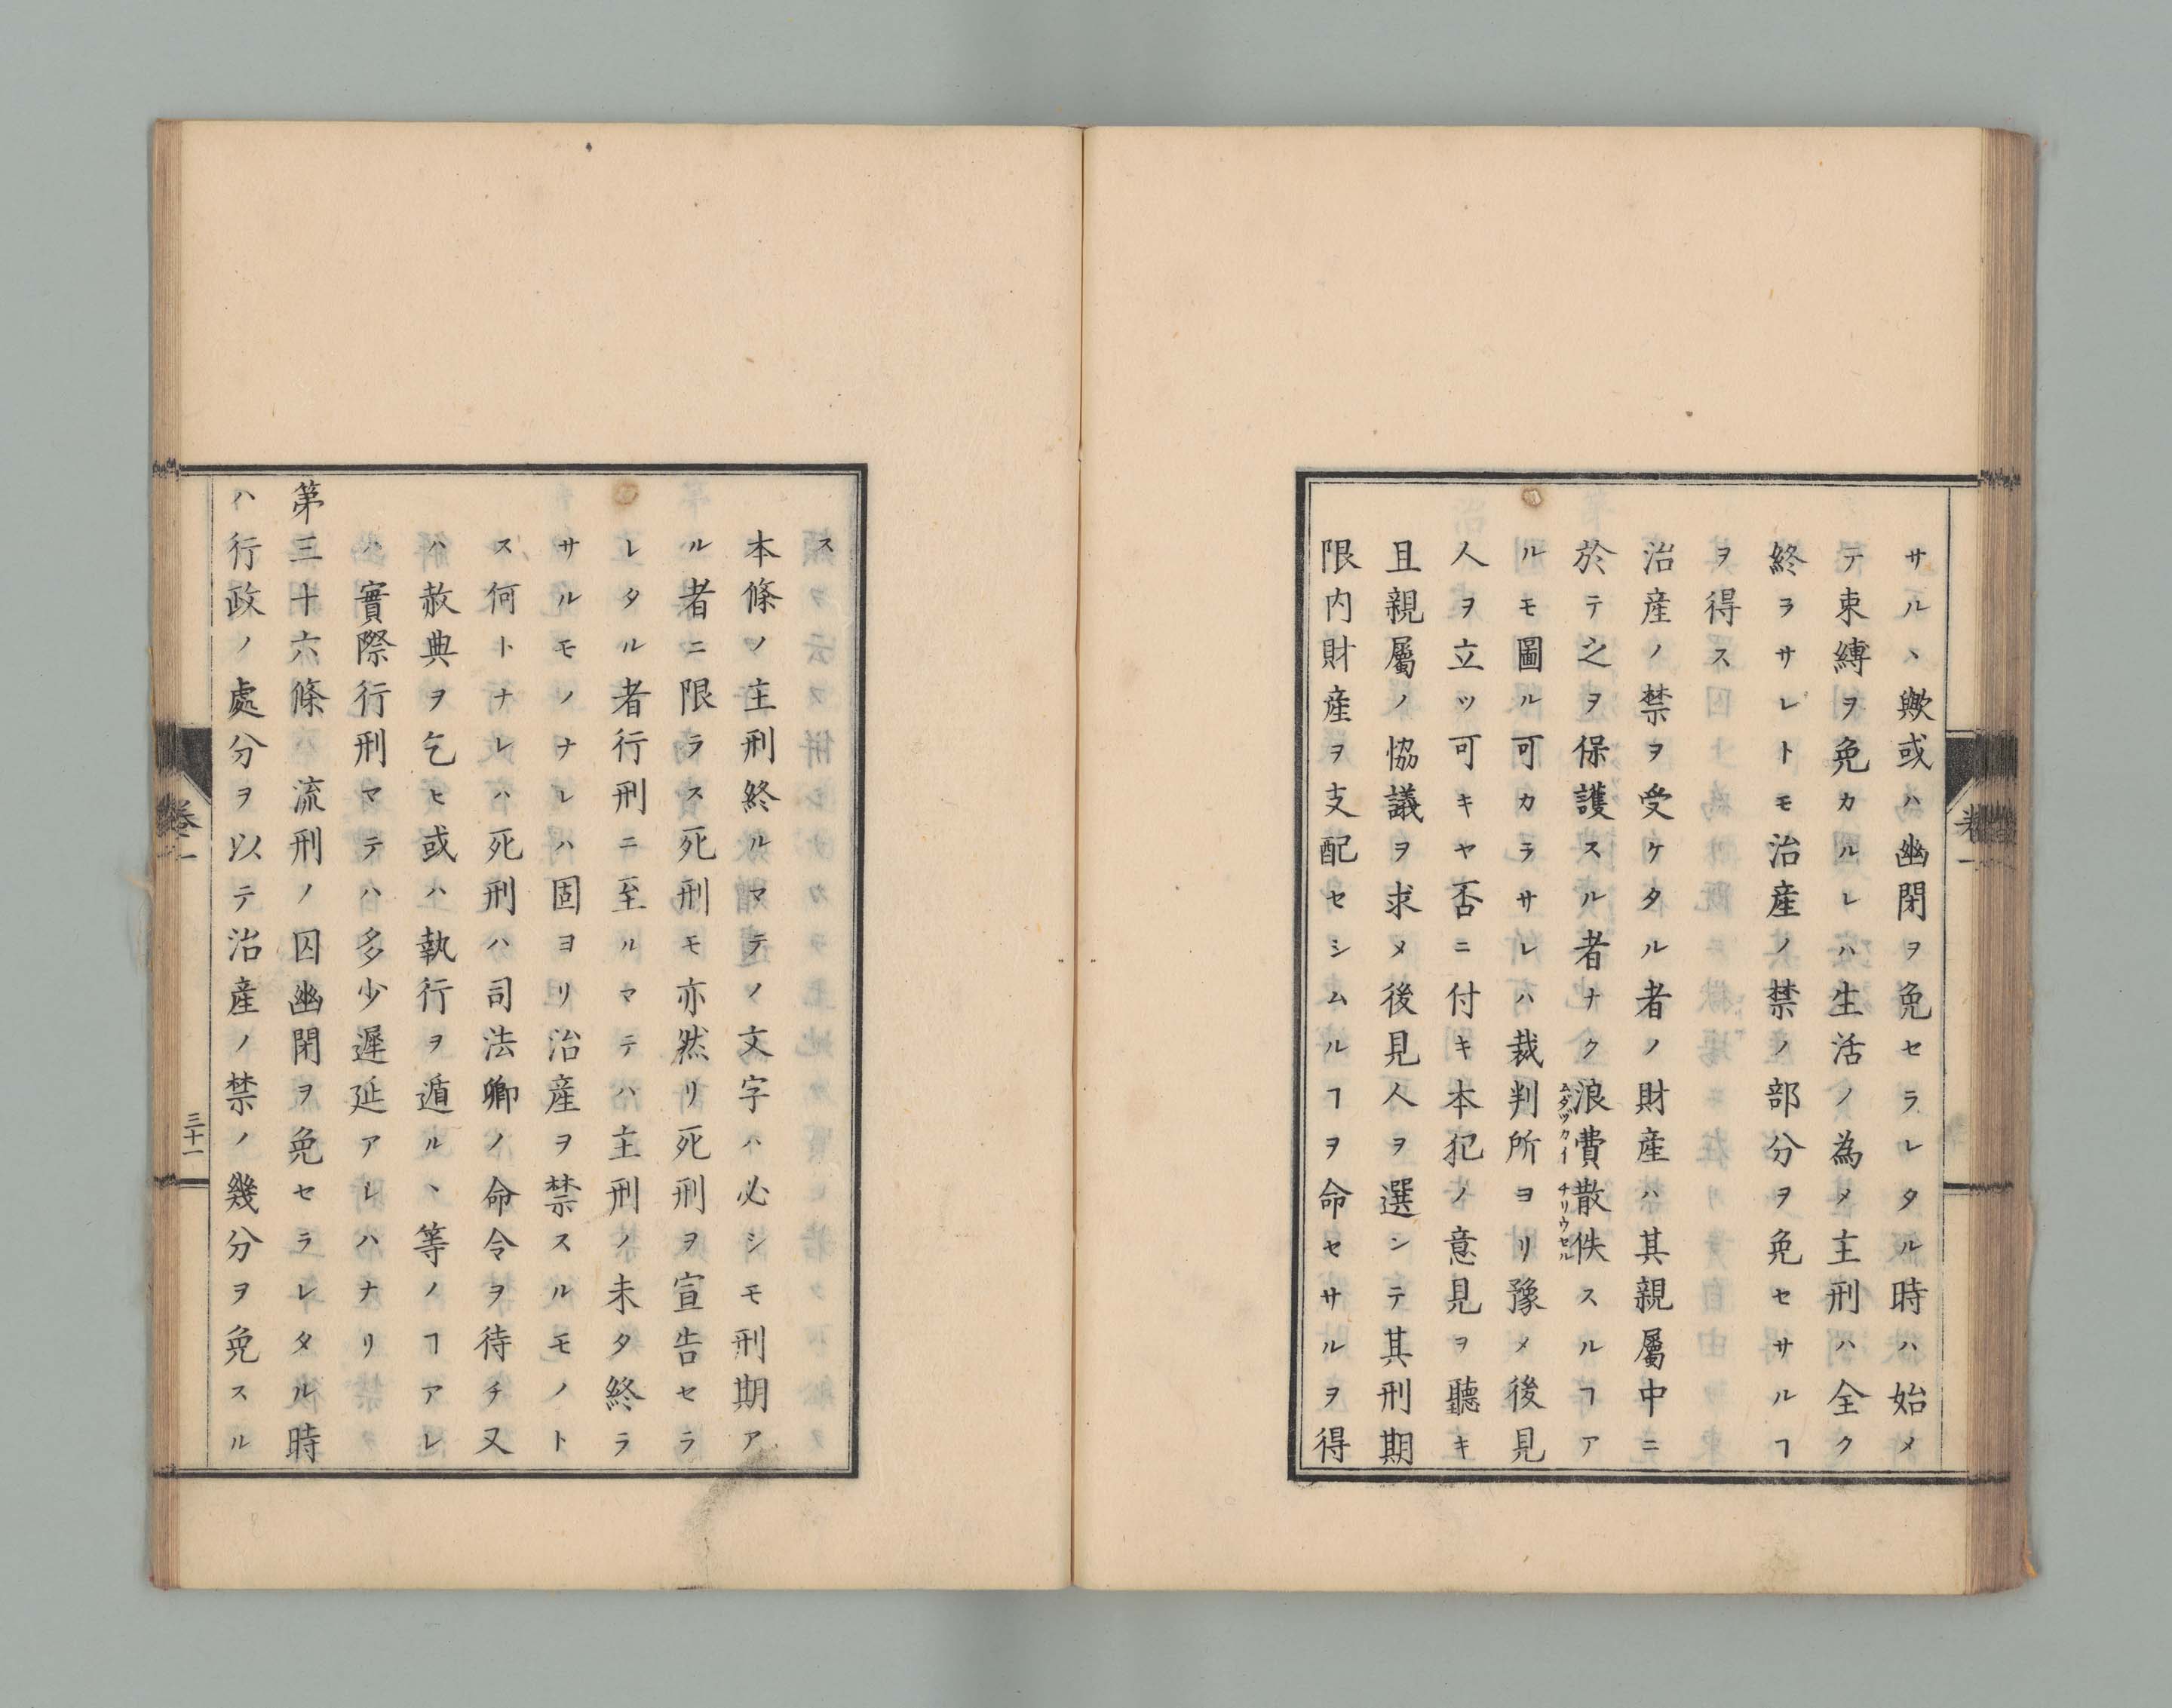 サルヽ歟或ハ幽閉ヲ免セラレタル時ハ始メ
テ束縛ヲ免カルレハ生活ノ為メ主刑ハ全ク
終ヲサレトモ治産ノ禁ノ部分ヲ免セサルヿ
ヲ得ス
治産ノ禁ヲ受ケタル者ノ財産ハ其親屬中ニ
於テ之ヲ保護スル者ナク浪費散佚スルヿア
ムダヅカイ
チリウセル
ルモ圖ル可カラサレハ裁判所ヨリ豫メ後見
人ヲ立ツ可キヤ否ニ付キ本犯ノ意見ヲ聽キ
且親屬ノ協議ヲ求メ後見人ヲ選シテ其刑期
限内財産ヲ支配セシムルヿヲ命セサルヲ得
ス
本條ノ主刑終ルマテノ文字ハ必シモ刑期ア
ル者ニ限ラス死刑モ亦然リ死刑ヲ宣告セラ
レタル者行刑ニ至ルマテハ主刑ノ未タ終ラ
サルモノナレハ固ヨリ治産ヲ禁スルモノト
ス何トナレハ死刑ハ司法卿ノ命令ヲ待チ又
ハ赦典ヲ乞ヒ或ハ執行ヲ遁ルヽ等ノヿアレ
ハ實際行刑マテハ多少遲延アレハナリ
第三十六條 流刑ノ囚幽閉ヲ免セラレタル時
ハ行政ノ處分ヲ以テ治産ノ禁ノ幾分ヲ免スル
卷一
三十一